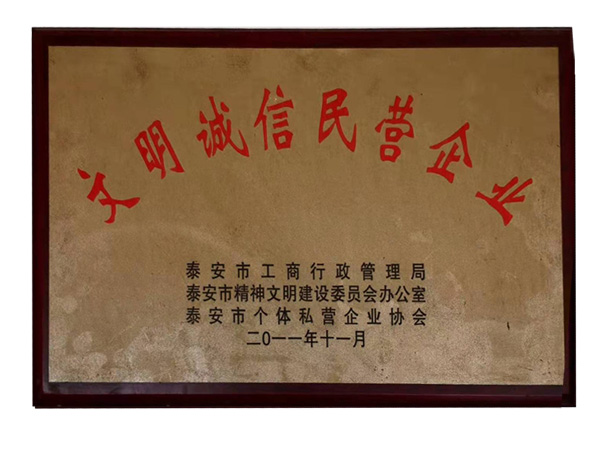 文明诚信民营企业
泰安市工商行政管理局
泰安市精神文明建设委员会办公室
泰安市个体私营企业协会
二〇一一年十一月